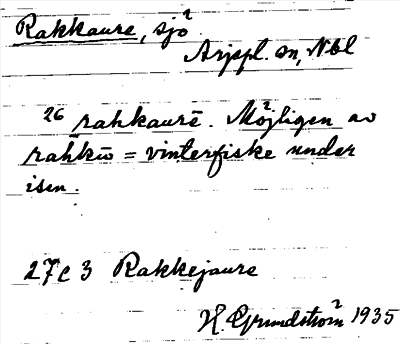 Rakkaure, sjö
Arjepl. sn, Nbl
26 rahkaurē. Möjligen av
rahkū = vinterfiske under
isen.
27c3 Rakkejaure
H. Grundström 1935